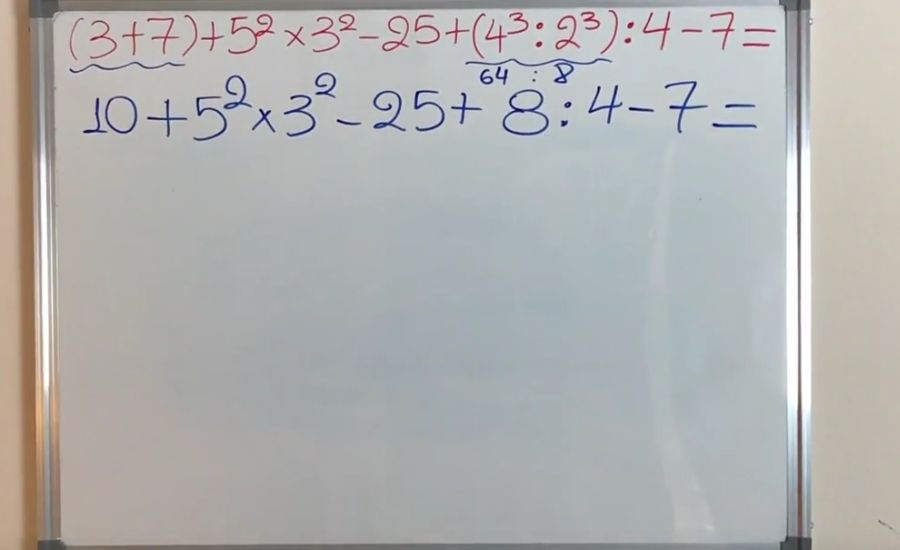 (3+7)+5²×3²-25+(4³:2³):4-7=
64 : 8
10+5²×3²-25+8:4-7=